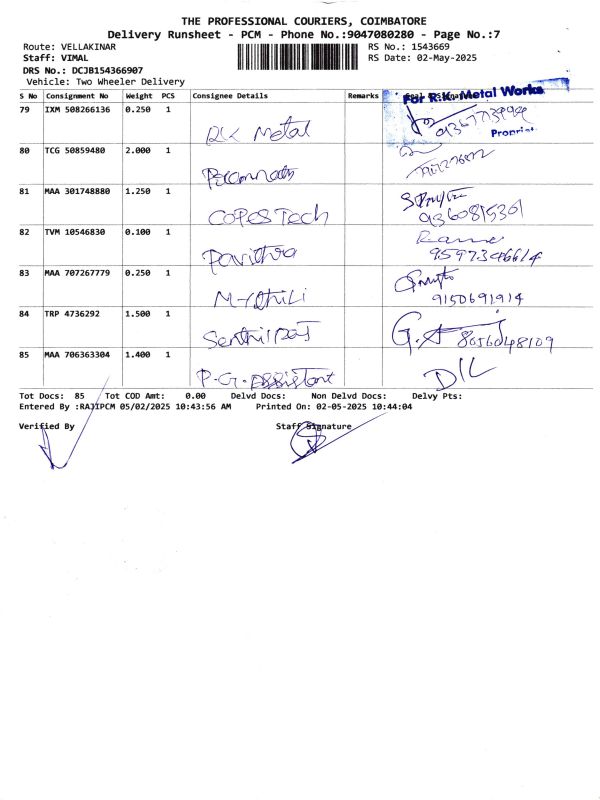 THE PROFESSIONAL COURIERS, COIMBATORE
Delivery Runsheet - PCM - Phone No.:9047080280 - Page No.:7
Route: VELLAKINAR RS No.: 1543669
Staff: VIMAL RS Date: 02-May-2025
DRS No.: DCJB154366907
Vehicle: Two Wheeler Delivery
S No Consignment No Weight PCS Consignee Details Remarks
For R.K. Metal Works
79 IXM 508266136 0.250 1
RK Metal
Propriet
80 TCG 50859480 2.000 1
81 MAA 301748880 1.250 1
COPES Tech 9360815301
82 TVM 10546830 0.100 1
Pavithra 9597346614
83 MAA 707267779 0.250 1
9150691914
84 TRP 4736292 1.500 1
Senthil 8056048109
85 MAA 706363304 1.400 1
P.G. Assistant D/L
Tot Docs: 85 Tot COD Amt: 0.00 Delvd Docs: Non Delvd Docs: Delvy Pts:
Entered By :RAJIPCM 05/02/2025 10:43:56 AM Printed On: 02-05-2025 10:44:04
Verified By Staff Signature